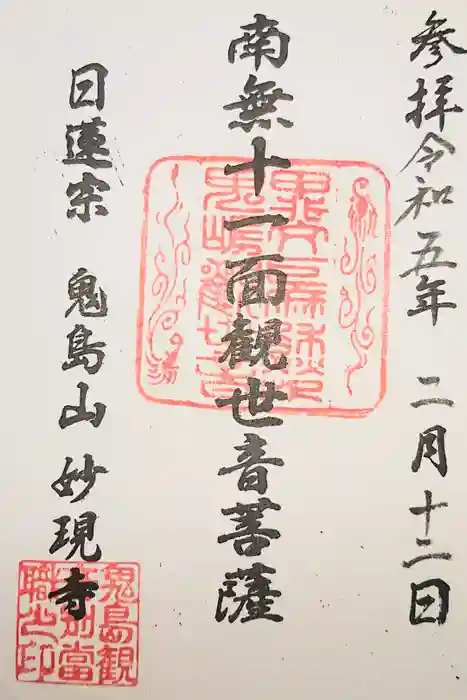 参拝令和五年 二月十二日
南無十一面観世音菩薩
日蓮宗 鬼島山 妙現寺
鬼島観
音別當
職之印